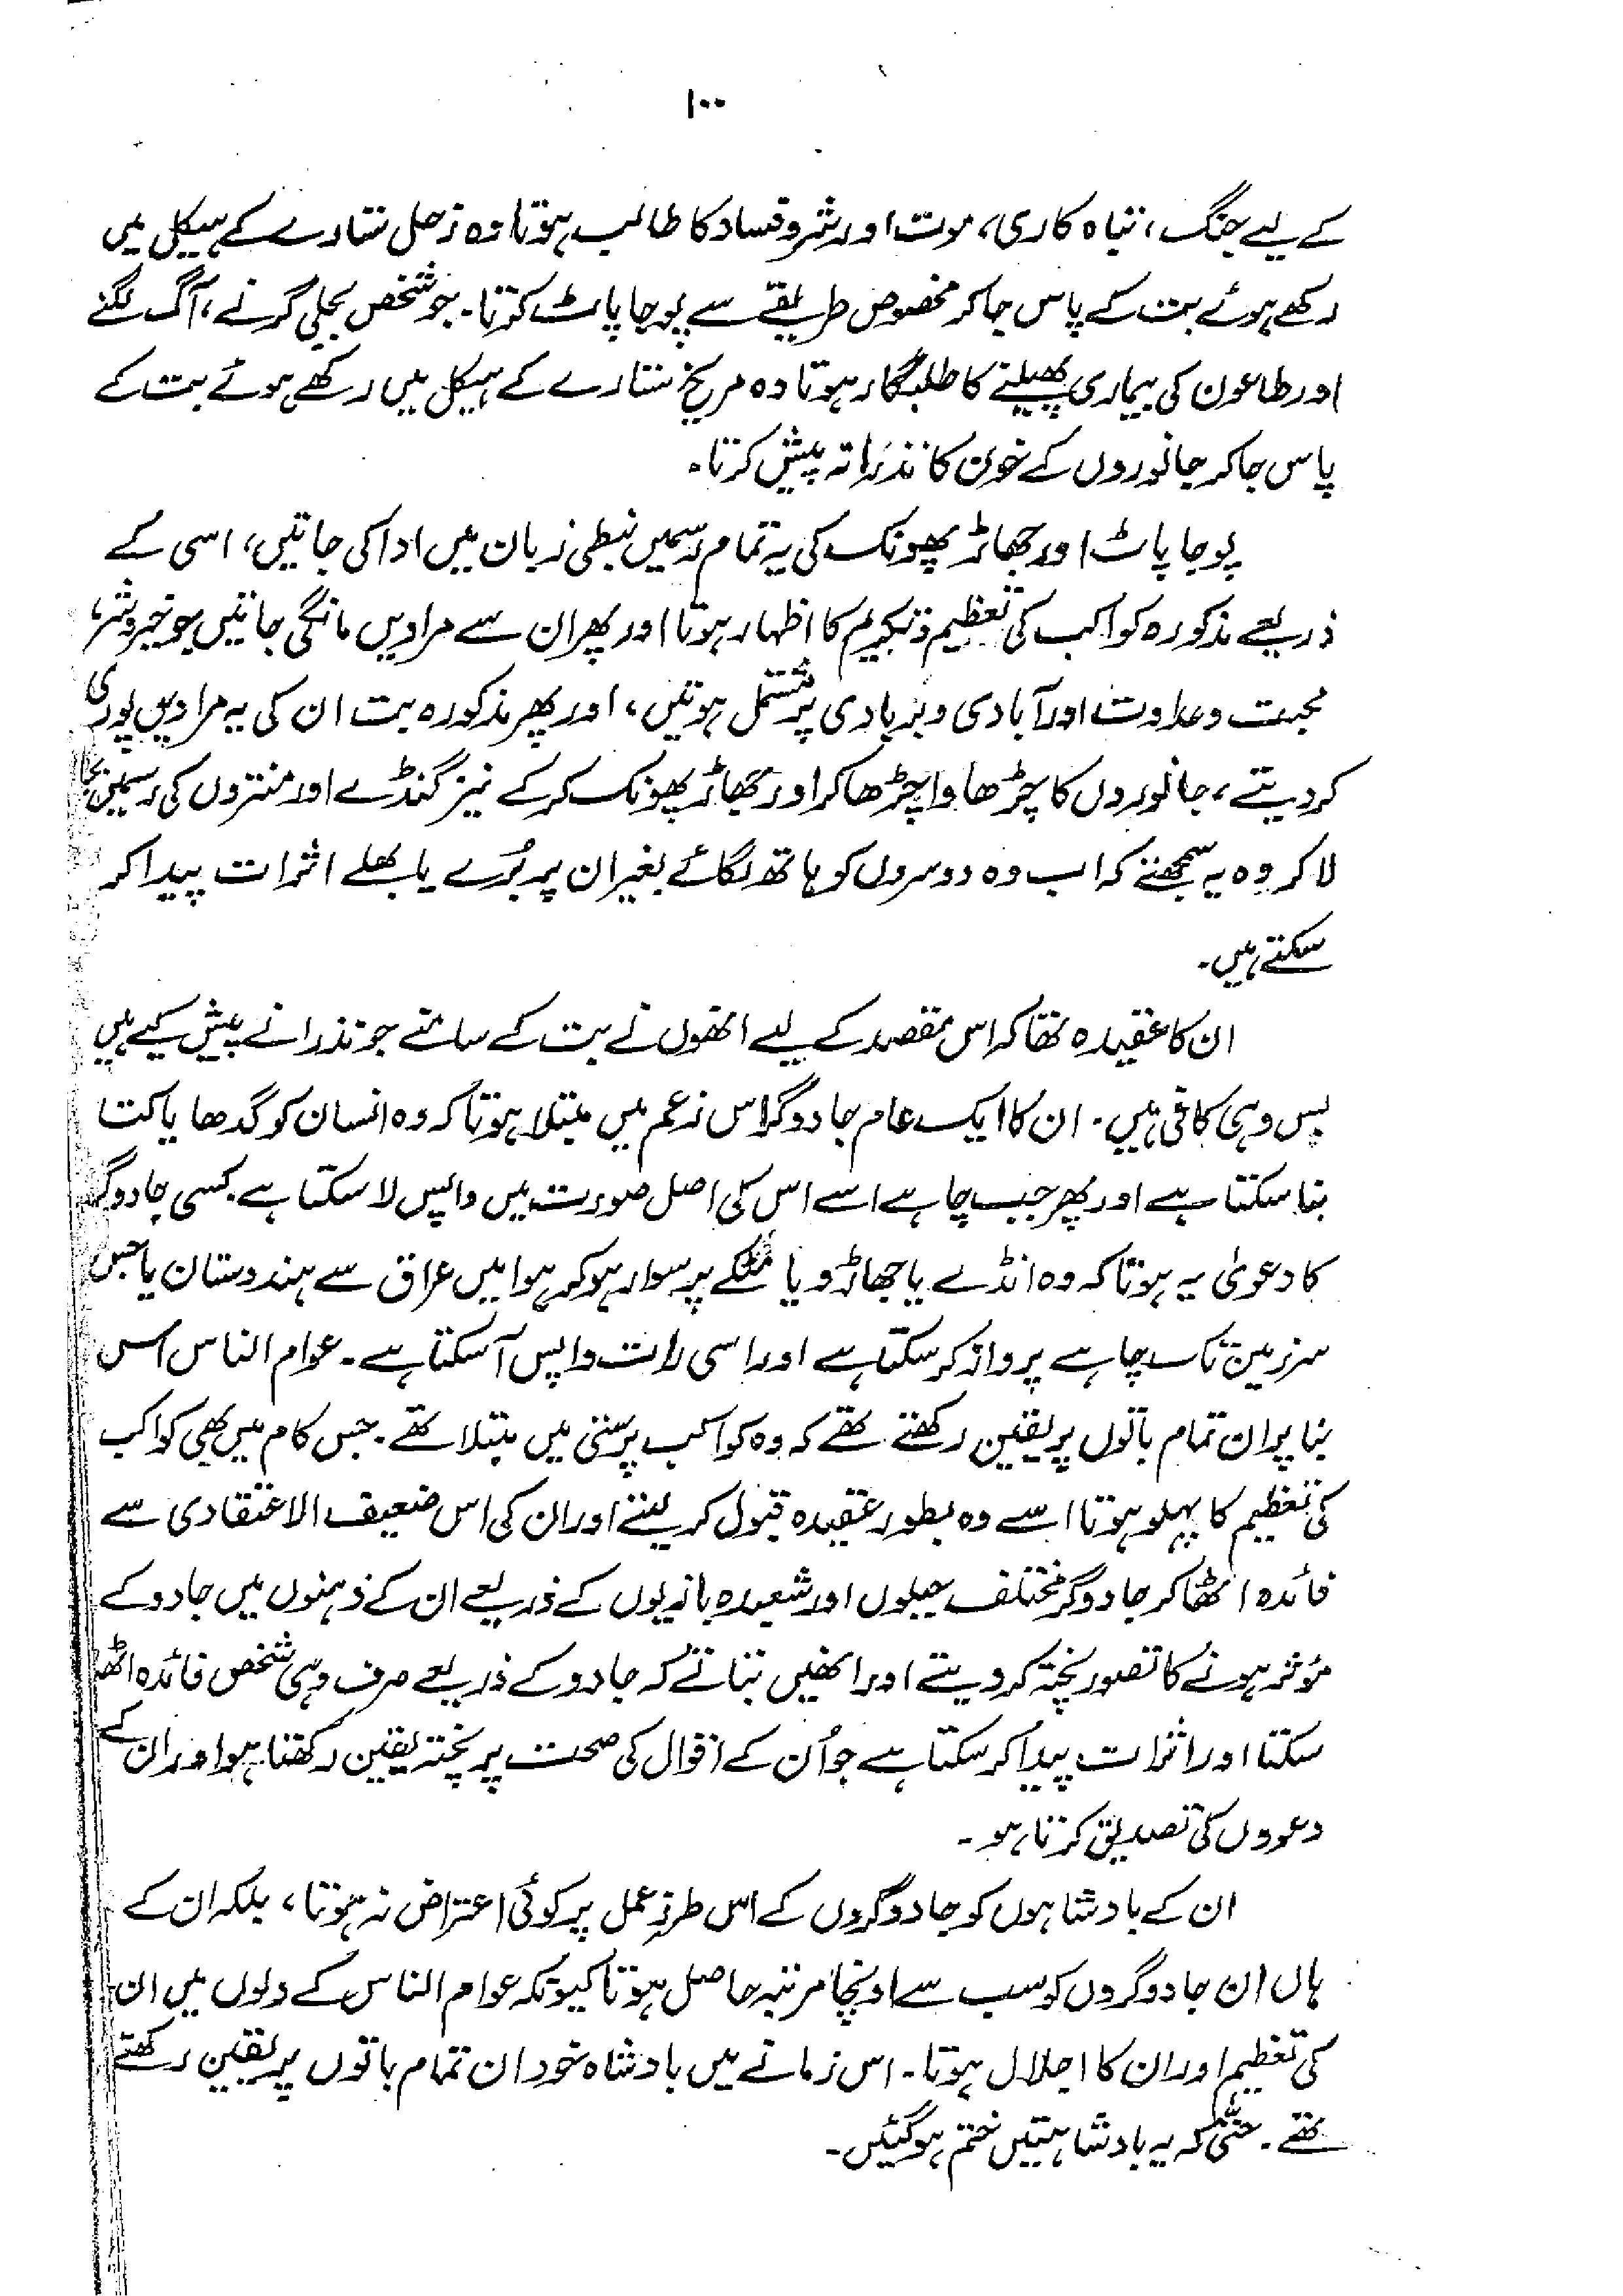 ۱۰۰
کے لیے جنگ، تباہ کاری، موت اور شر و فساد کا طالب ہوتا وہ زحل ستارے کے ہیکل میں
رکھے ہوئے بت کے پاس جا کر مخصوص طریقے سے پوجا پاٹ کرتا۔ جو شخص بجلی گرنے، آگ لگنے
اور طاعون کی بیماری پھیلنے کا طلبگار ہوتا وہ مریخ ستارے کے ہیکل میں رکھے ہوئے بت کے
پاس جا کر جانوروں کے خون کا نذرانہ پیش کرتا۔
پوجا پاٹ اور جھاڑ پھونک کی یہ تمام رسمیں نبطی زبان میں ادا کی جاتیں، اسی کے
ذریعے مذکورہ کواکب کی تعظیم و تکریم کا اظہار ہوتا اور پھر ان سے مرادیں مانگی جاتیں جو خیر و شر،
محبت و عداوت اور آبادی و بربادی پر مشتمل ہوتیں، اور پھر مذکورہ بت ان کی یہ مرادیں پوری
کر دیتے، جانوروں کا چڑھاوا چڑھا کر اور جھاڑ پھونک کر کے نیز گنڈے اور منتروں کی رسمیں بجا
لا کر وہ یہ سمجھتے کہ اب وہ دوسروں کو ہاتھ لگائے بغیر ان پر بُرے یا بھلے اثرات پیدا کر
سکتے ہیں۔
ان کا عقیدہ تھا کہ اس مقصد کے لیے انھوں نے بت کے سامنے جو نذرانے پیش کیے ہیں
بس وہی کافی ہیں۔ ان کا ایک عام جادوگر اس زعم میں مبتلا ہوتا کہ وہ انسان کو گدھا یا کتا
بنا سکتا ہے اور پھر جب چاہے اسے اس کی اصل صورت میں واپس لا سکتا ہے۔ کسی جادوگر
کا دعویٰ یہ ہوتا کہ وہ انڈے یا جھاڑو یا مٹکے پر سوار ہو کر ہوا میں عراق سے ہندوستان یا جس
سرزمین تک چاہے پرواز کر سکتا ہے اور اسی رات واپس آ سکتا ہے۔ عوام الناس اس
بنا پر ان تمام باتوں پر یقین رکھتے تھے کہ وہ کواکب پرستی میں مبتلا تھے۔ جس کام میں بھی کواکب
کی تعظیم کا پہلو ہوتا اسے وہ بطور عقیدہ قبول کر لیتے اور ان کی اس ضعیف الاعتقادی سے
فائدہ اٹھا کر جادوگر مختلف حیلوں اور شعبدہ بازیوں کے ذریعے ان کے ذہنوں میں جادو کے
مؤثر ہونے کا تصور پختہ کر دیتے اور انھیں بتاتے کہ جادو کے ذریعے صرف وہی شخص فائدہ اٹھا
سکتا اور اثرات پیدا کر سکتا ہے جو اُن کے اقوال کی صحت پر پختہ یقین رکھتا ہو اور ان کے
دعووں کی تصدیق کرتا ہو۔
ان کے بادشاہوں کو جادوگروں کے اس طرزِ عمل پر کوئی اعتراض نہ ہوتا، بلکہ ان کے
ہاں ان جادوگروں کو سب سے اونچا مرتبہ حاصل ہوتا کیونکہ عوام الناس کے دلوں میں ان
کی تعظیم اور ان کا اجلال ہوتا۔ اس زمانے میں بادشاہ خود ان تمام باتوں پر یقین رکھتے
تھے۔ حتّٰی کہ یہ بادشاہتیں ختم ہو گئیں۔